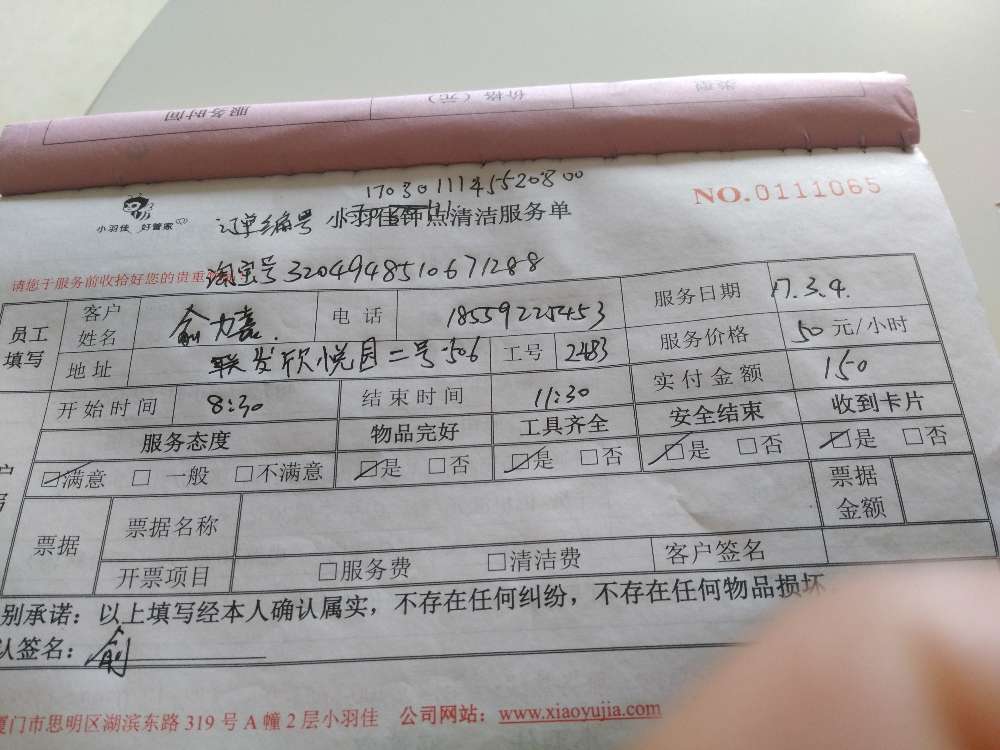 服务时间 价格（元） 类型
1703011145520800
NO.0111065
小羽佳 好管家
订单编号 小羽佳钟点清洁服务单
淘宝号3204948510671288
请您于服务前收拾好您的贵重
员工填写 客户姓名 俞力嘉. 电话 18559225453 服务日期 17.3.4.
地址 联发欣悦园二号506 工号 2483 服务价格 50 元/小时
开始时间 8:30 结束时间 11:30 实付金额 150
服务态度 物品完好 工具齐全 安全结束 收到卡片
满意 一般 不满意 是 否 是 否 是 否 是 否
票据 票据名称 票据金额
开票项目 服务费 清洁费 客户签名
别承诺：以上填写经本人确认属实，不存在任何纠纷，不存在任何物品损坏
认签名：俞
厦门市思明区湖滨东路 319 号 A 幢 2 层小羽佳 公司网站：www.xiaoyujia.com